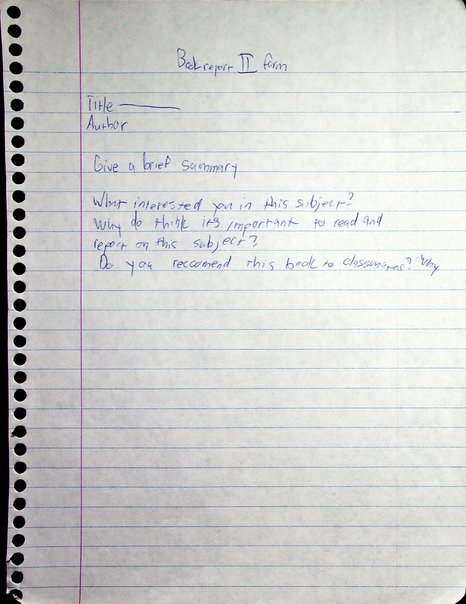 Book report II form
Title
Author
Give a brief summary
What interested you in this subject?
Why do think it's important to read and
report on this subject?
Do you reccomend this book to classmates? Why